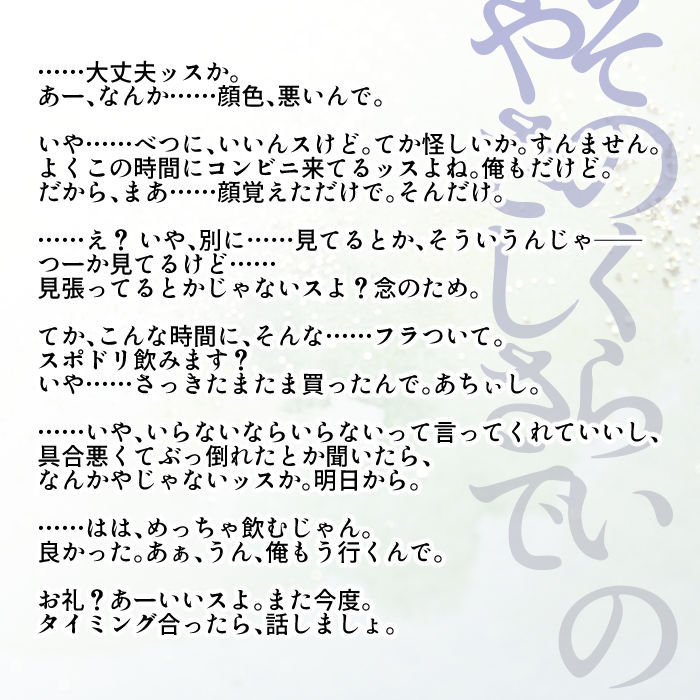 ……大丈夫ッスか。
あー、なんか……顔色、悪いんで。
いや……べつに、いいんスけど。てか怪しいか。すんません。
よくこの時間にコンビニ来てるッスよね。俺もだけど。
だから、まあ……顔覚えただけで。そんだけ。
……え？ いや、別に……見てるとか、そういうんじゃ――
つーか見てるけど……
見張ってるとかじゃないスよ？念のため。
てか、こんな時間に、そんな……フラついて。
スポドリ飲みます？
いや……さっきたまたま買ったんで。あちぃし。
……いや、いらないならいらないって言ってくれていいし、
具合悪くてぶっ倒れたとか聞いたら、
なんかやじゃないッスか。明日から。
……はは、めっちゃ飲むじゃん。
良かった。あぁ、うん、俺もう行くんで。
お礼？あーいいスよ。また今度。
タイミング合ったら、話しましょ。
そのくらいの
やさしさで